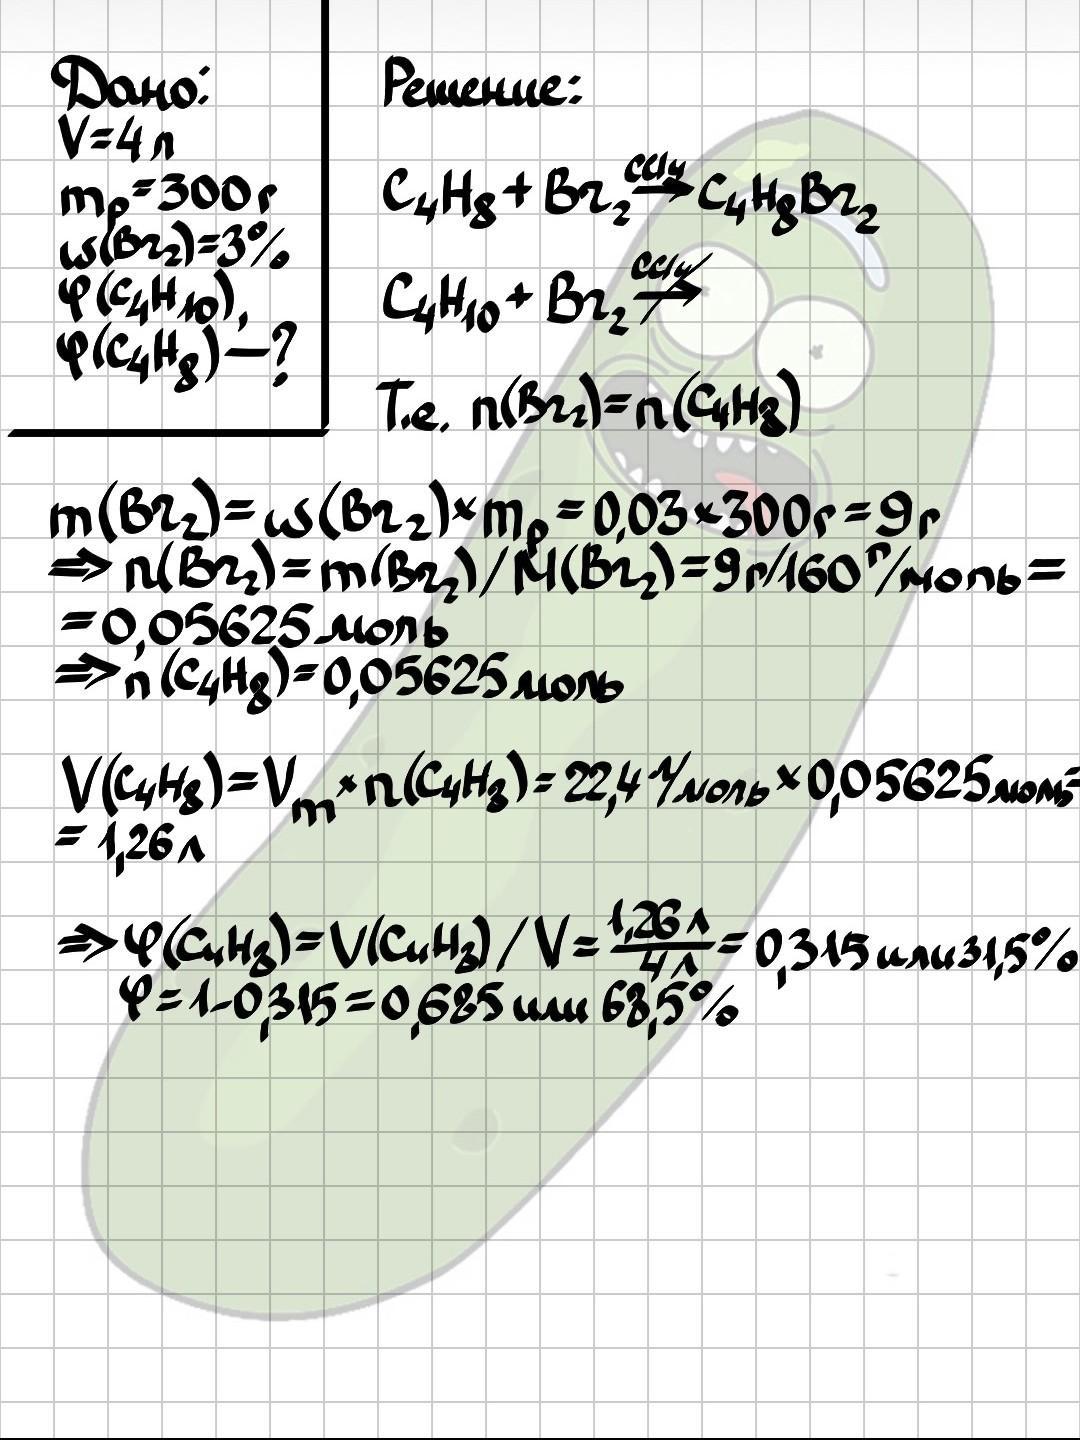 Дано:
V=4 л
mₚ=300г
ω(Br₂)=3%
φ(C₄H₁₀),
φ(C₄H₈)—?
Решение:
C₄H₈ + Br₂ –CCl₄→ C₄H₈Br₂
C₄H₁₀ + Br₂ –CCl₄↛
Т.е. n(Br₂)=n(C₄H₈)
m(Br₂)=ω(Br₂)×mₚ=0,03×300г=9г
⇒ n(Br₂)=m(Br₂)/M(Br₂)=9г/160г/моль=
=0,05625моль
⇒ n(C₄H₈)=0,05625моль
V(C₄H₈)=Vm×n(C₄H₈)=22,4л/моль×0,05625моль=
=1,26л
⇒ φ(C₄H₈)=V(C₄H₈)/V=1,26л/4л=0,315или31,5%
φ=1-0,315=0,685или 68,5%